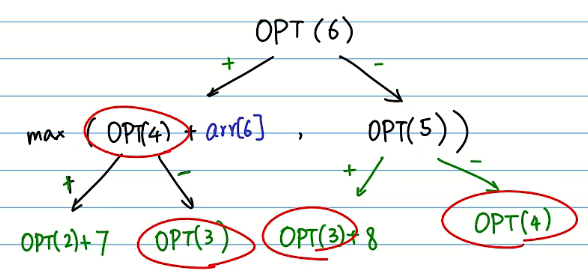 OPT(6)
+ -
max ( OPT(4) + arr[6] , OPT(5) )
+ - + -
OPT(2)+7 OPT(3) OPT(3)+8 OPT(4)